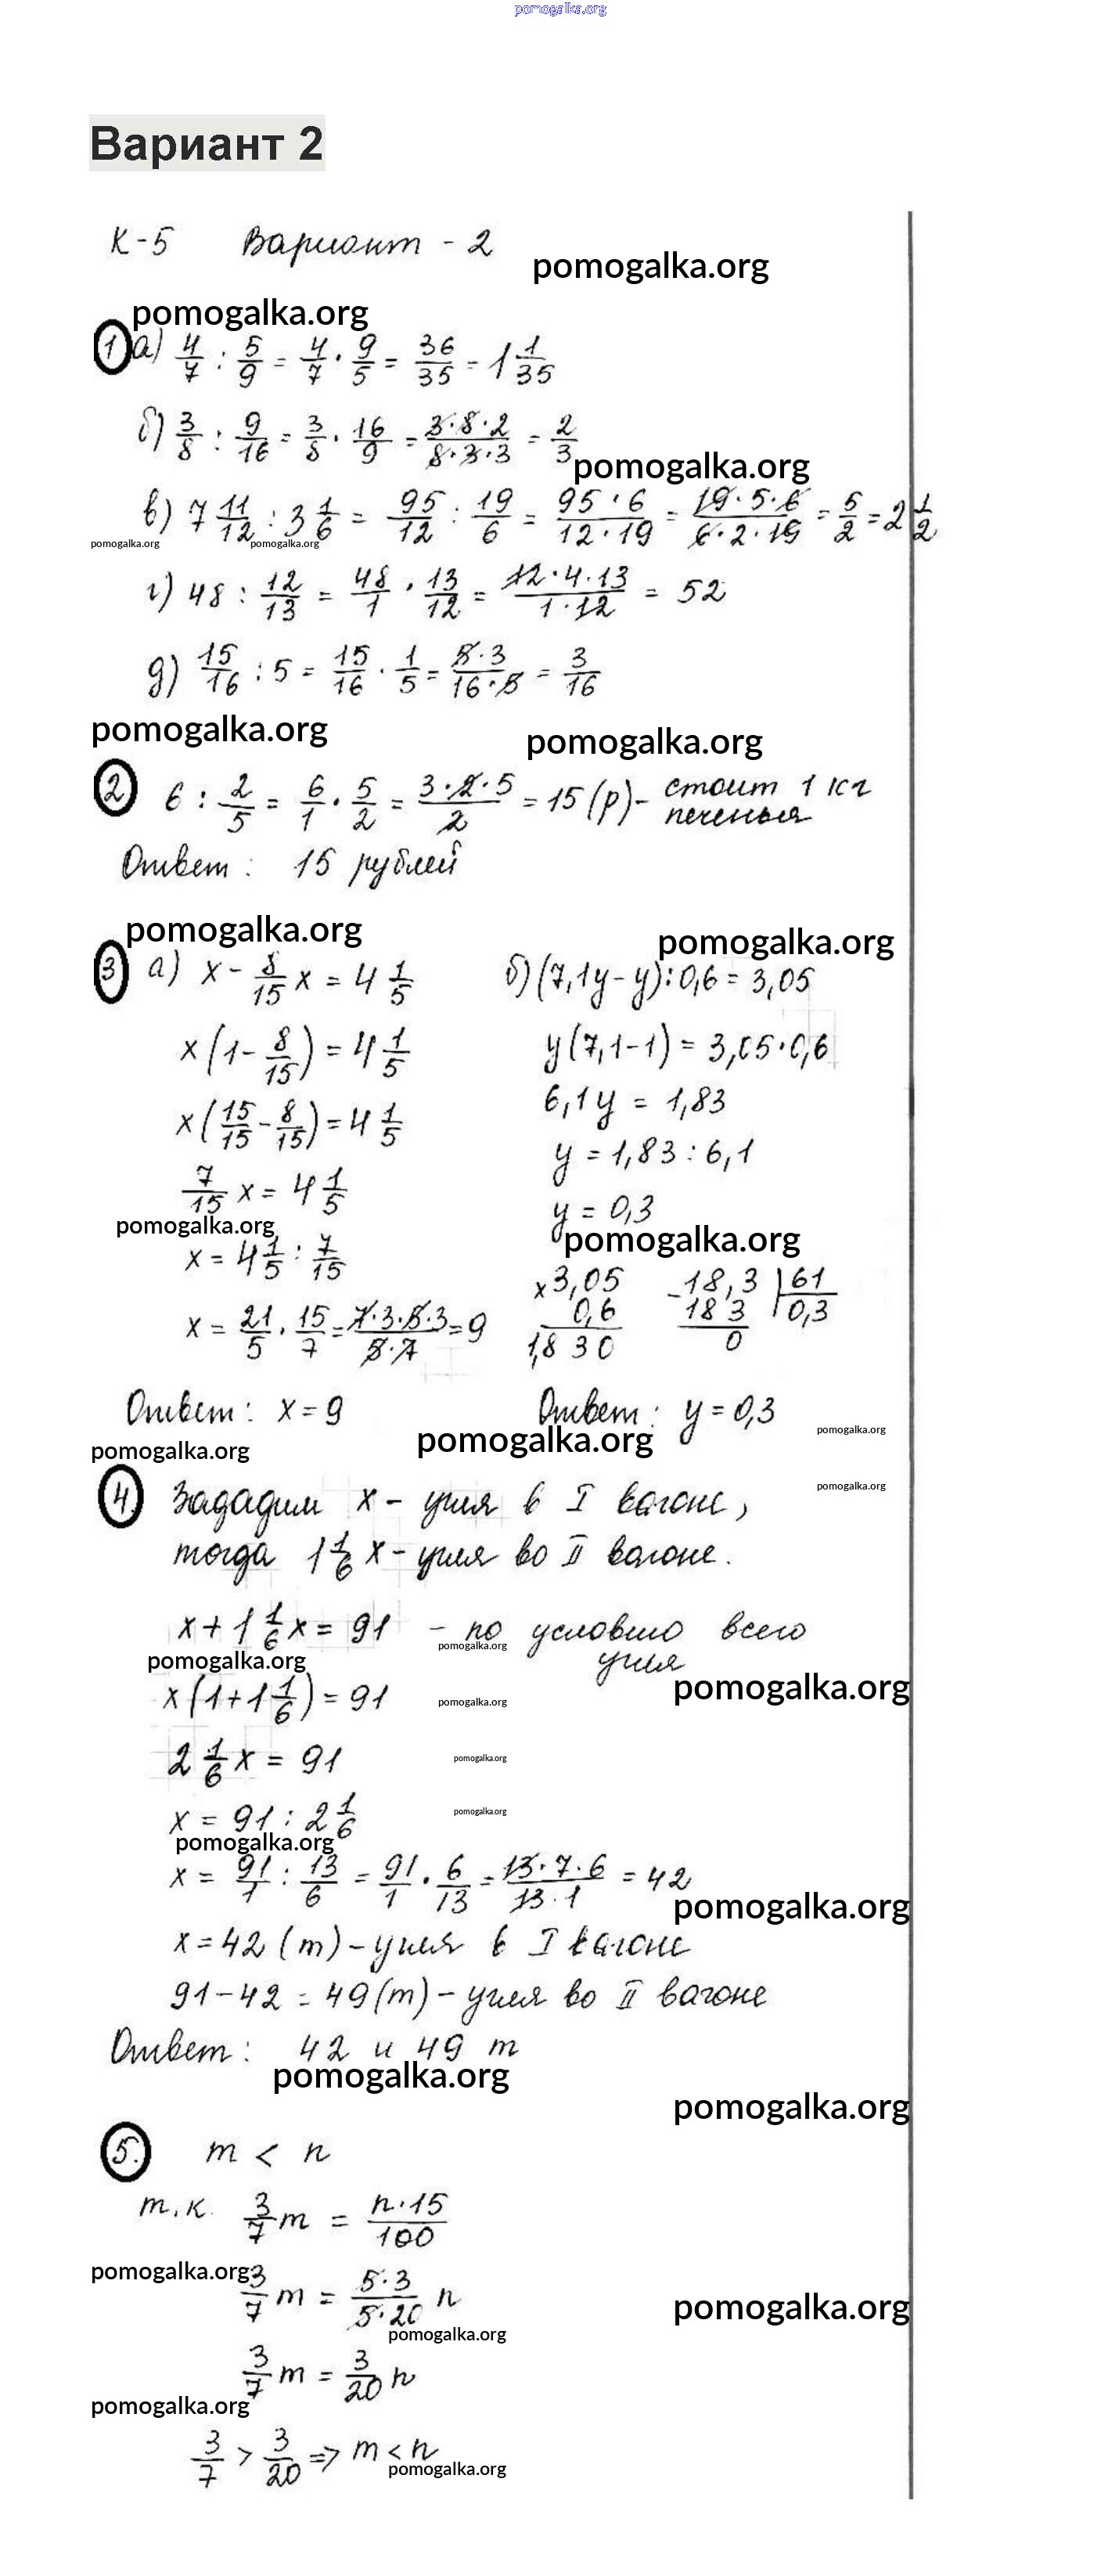 pomogalka.org
Вариант 2
К-5 Вариант - 2
pomogalka.org
pomogalka.org
1 а) 4/7 : 5/9 = 4/7 · 9/5 = 36/35 = 1 1/35
б) 3/8 : 9/16 = 3/8 · 16/9 = 3·8·2/8·3·3 = 2/3
pomogalka.org
в) 7 11/12 : 3 1/6 = 95/12 : 19/6 = 95·6/12·19 = 19·5·6/6·2·19 = 5/2 = 2 1/2
pomogalka.org pomogalka.org
г) 48 : 12/13 = 48/1 · 13/12 = 12·4·13/1·12 = 52
д) 15/16 : 5 = 15/16 · 1/5 = 5·3/16·5 = 3/16
pomogalka.org pomogalka.org
2 6 : 2/5 = 6/1 · 5/2 = 3·2·5/2 = 15 (р) - стоит 1 кг
печенья
Ответ : 15 рублей
pomogalka.org pomogalka.org
3 а) x - 8/15 x = 4 1/5 б) (7,1y - y) : 0,6 = 3,05
x (1 - 8/15) = 4 1/5 y (7,1-1) = 3,05·0,6
x (15/15 - 8/15) = 4 1/5 6,1y = 1,83
7/15 x = 4 1/5 y = 1,83 : 6,1
pomogalka.org y = 0,3
x = 4 1/5 : 7/15 pomogalka.org
x = 21/5 · 15/7 = 7·3·5·3/5·7 = 9 x 3,05 - 18,3 | 61
0,6 18 3 0,3
1,8 3 0 0
Ответ : x = 9 Ответ : y = 0,3
pomogalka.org pomogalka.org pomogalka.org
4. Зададим x - угля в I вагоне, pomogalka.org
тогда 1 1/6 x - угля во II вагоне.
x + 1 1/6 x = 91 - по условию всего
угля
pomogalka.org pomogalka.org pomogalka.org
x (1 + 1 1/6) = 91 pomogalka.org
2 1/6 x = 91 pomogalka.org
x = 91 : 2 1/6 pomogalka.org
pomogalka.org
x = 91/1 : 13/6 = 91/1 · 6/13 = 13·7·6/13·1 = 42
pomogalka.org
x = 42 (т) - угля в I вагоне
91 - 42 = 49 (т) - угля во II вагоне
Ответ : 42 и 49 т
pomogalka.org
pomogalka.org
5. m < n
т.к. 3/7 m = n·15/100
pomogalka.org 3/7 m = 5·3/5·20 n pomogalka.org
pomogalka.org
3/7 m = 3/20 n
pomogalka.org
3/7 > 3/20 => m < n
pomogalka.org